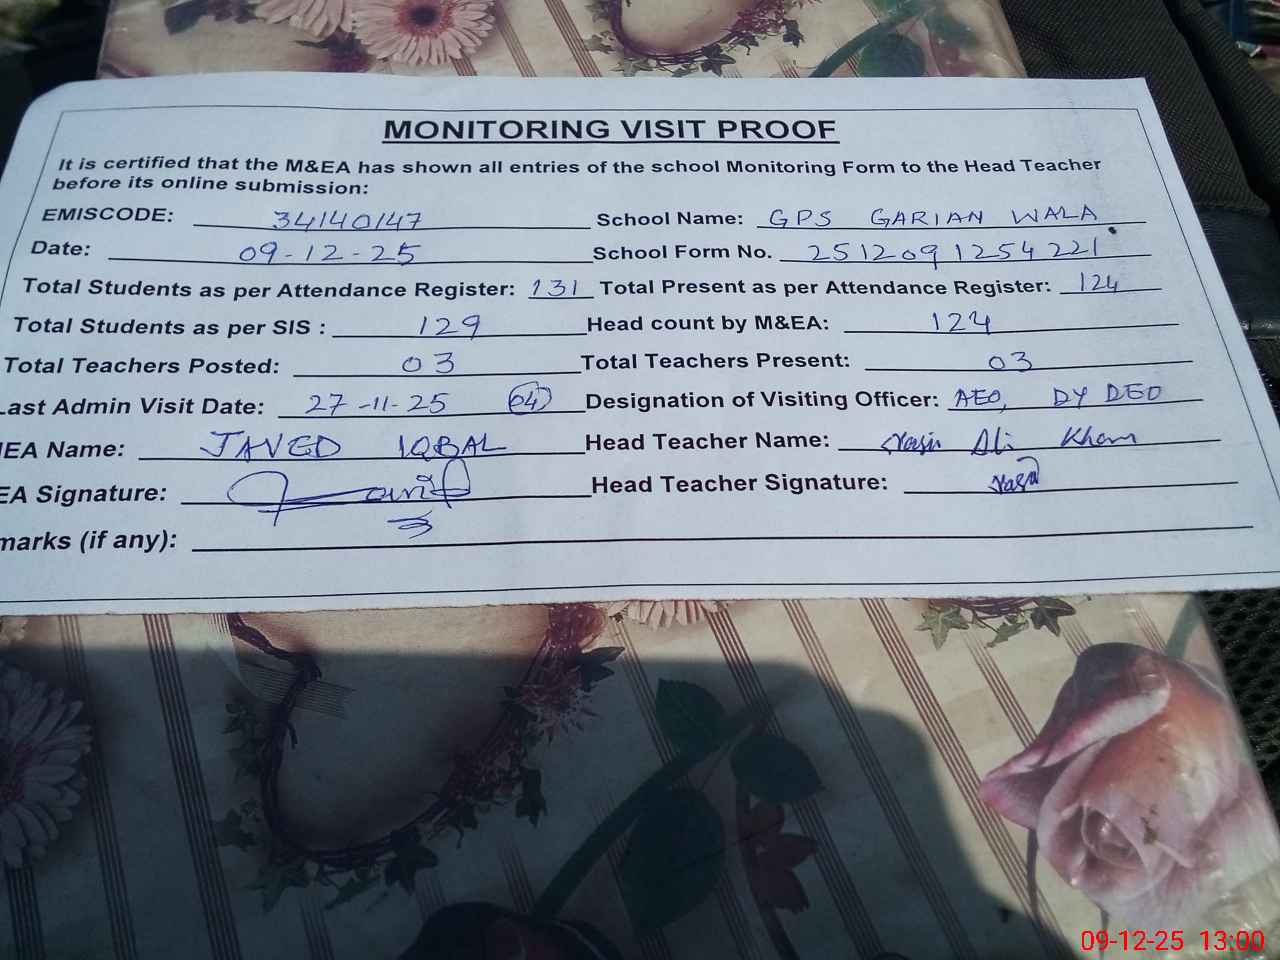 MONITORING VISIT PROOF
It is certified that the M&EA has shown all entries of the school Monitoring Form to the Head Teacher
before its online submission:
EMISCODE: 34140147 School Name: GPS GARIAN WALA
Date: 09-12-25 School Form No. 2512091254221
Total Students as per Attendance Register: 131 Total Present as per Attendance Register: 124
Total Students as per SIS : 129 Head count by M&EA: 124
Total Teachers Posted: 03 Total Teachers Present: 03
Last Admin Visit Date: 27-11-25 (04) Designation of Visiting Officer: AEO, DY DEO
EA Name: JAVED IQBAL Head Teacher Name: Yasir Ali Khan
EA Signature: Head Teacher Signature: Yasir
marks (if any):
09-12-25 13:00